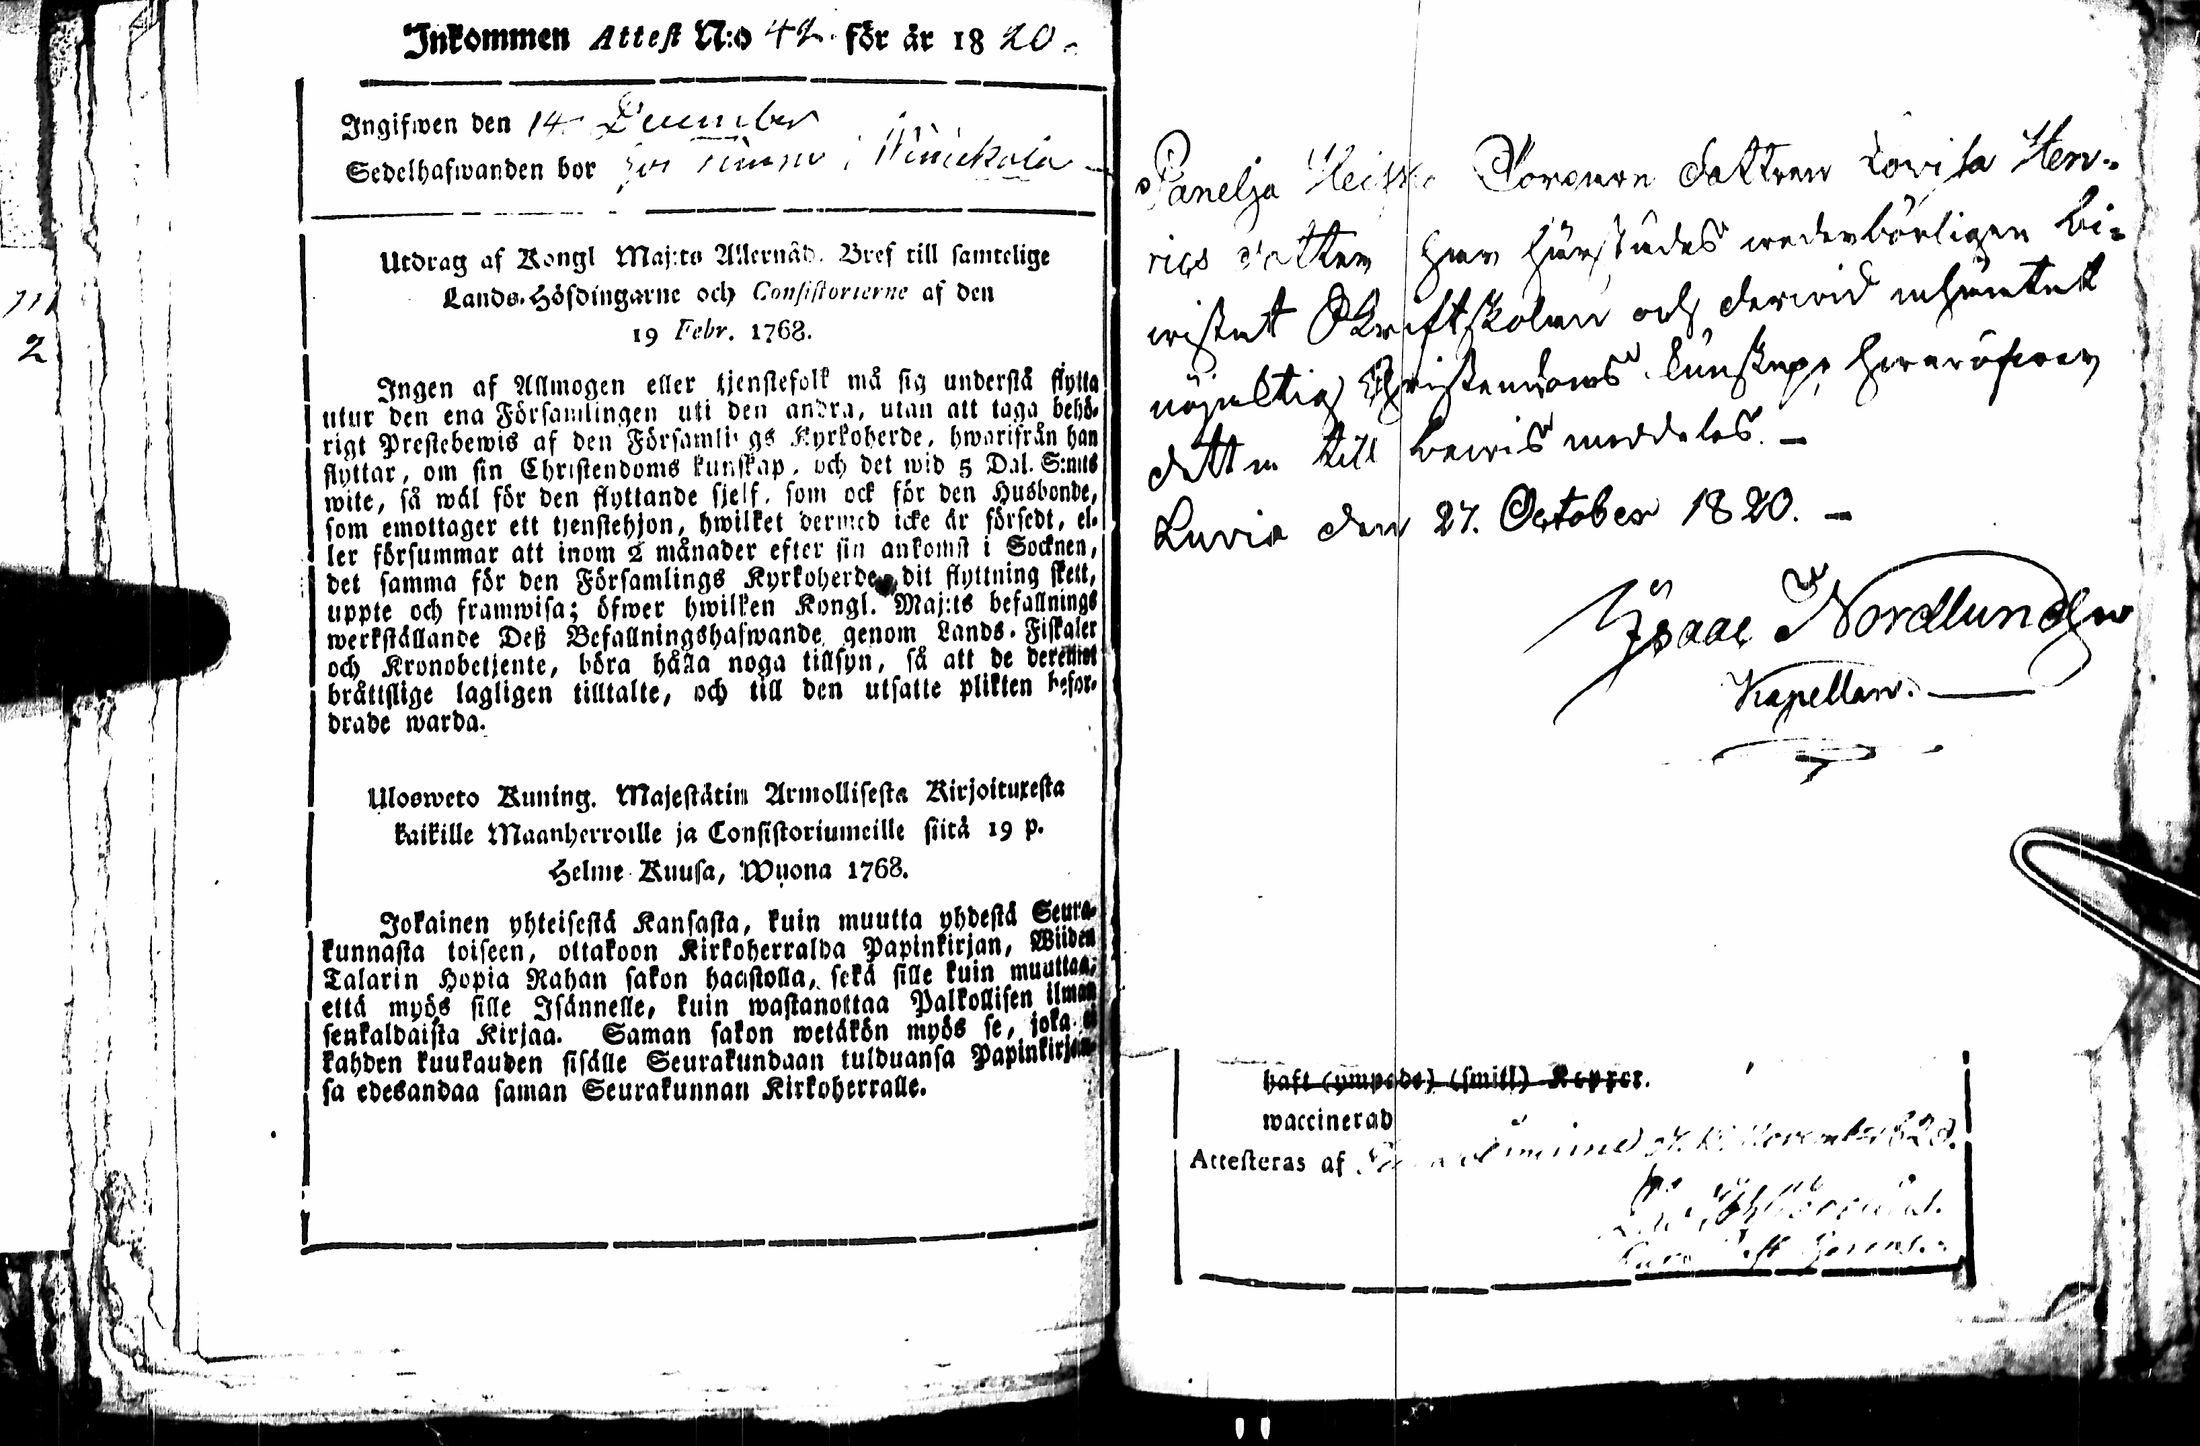 Inkommen Attest N:o 42. för år 1820.
Ingifwen den 14 December
Sedelhafwanden bor hos i
Utdrag af Kongl Maj:ts Allernåd. Bref till samtelige
Lands-Höfdingarne och Consistorierne af den
19 Febr. 1768.
Ingen af Allmogen eller tjenstefolk må sig understå flytta
utur den ena Församlingen uti den andra, utan att taga behö-
rigt Prestebewis af den Församlings Kyrkoherde, hwarifrån han
flyttar, om sin Christendoms kunskap, och det wid 5 Dal. S:mts
wite, så wäl för den flyttande sjelf, som ock för den Husbonde,
som emottager ett tjenstehjon, hwilket dermed icke är försedt, el-
ler försummar att inom 2 månader efter sin ankomst i Socknen,
det samma för den Församlings Kyrkoherde, dit flyttning skett,
uppte och framwisa; öfwer hwilken Kongl. Maj:ts befallnings
werkställande Deß Befallningshafwande genom Lands-Fiskaler
och Kronobetjente, böra hålla noga tillsyn, så att de deremot
bråttslige lagligen tilltalte, och till den utsatte plikten befor-
drade warda.
Ulosweto Kuning. Majestätin Armollisesta Kirjoituxesta
kaikille Maanherroille ja Consistoriumeille siitä 19 p.
Helme Kuusa, Wuona 1768.
Jokainen yhteisestä Kansasta, kuin muutta yhdestä Seura-
kunnasta toiseen, ottakoon Kirkoherralda Papinkirjan, Wiiden
Talarin Hopia Rahan sakon haastolla, sekä sille kuin muuttaa,
että myös sille Isännelle, kuin wastanottaa Palkollisen ilman
senkaldaista Kirjaa. Saman sakon wetäkön myös se, joka ei
kahden kuukauden sisälle Seurakundaan tulduansa Papinkirjan-
sa edesandaa saman Seurakunnan Kirkoherralle.
Panelja Heikk. dottren Lovisa Hen-
rics dotter har härstädes wederbörligen bi-
wistat Skriftskolan och derwid inhämtat
nöjaktig Christendoms kunskap, hwaröfwer
detta till bewis meddelas. —
Luvia den 27. October 1820. —
Isaac Nordlund
Kapellan.
haft (ympade) (smitt) Koppor.
waccinerad
Attesteras af November 1820.